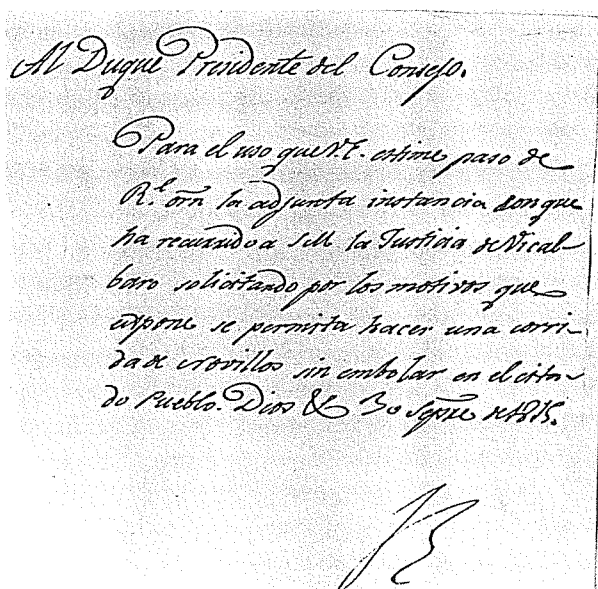 Al Duque Presidente del Consejo.
Para el uso que V.E. estime paso de
R.l orn la adjunta instancia con que
ha recurrido a S.M. la Justicia de Vical-
baro solicitando por los motivos que
expone se permita hacer una corri-
da de Novillos sin embolar en el cita-
do Pueblo. Dios &c 30 Sepre de 1815.